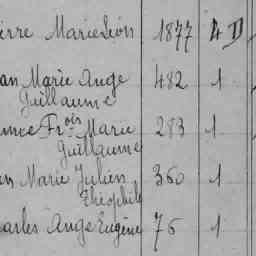 ierre Marie Léon 1877 4 D
an Marie Ange 482 1
Guillaume
ance Frois Marie 283 1
Guillaume
en Marie Julien 360 1
Théophile
harles Ange Eugène 76 1